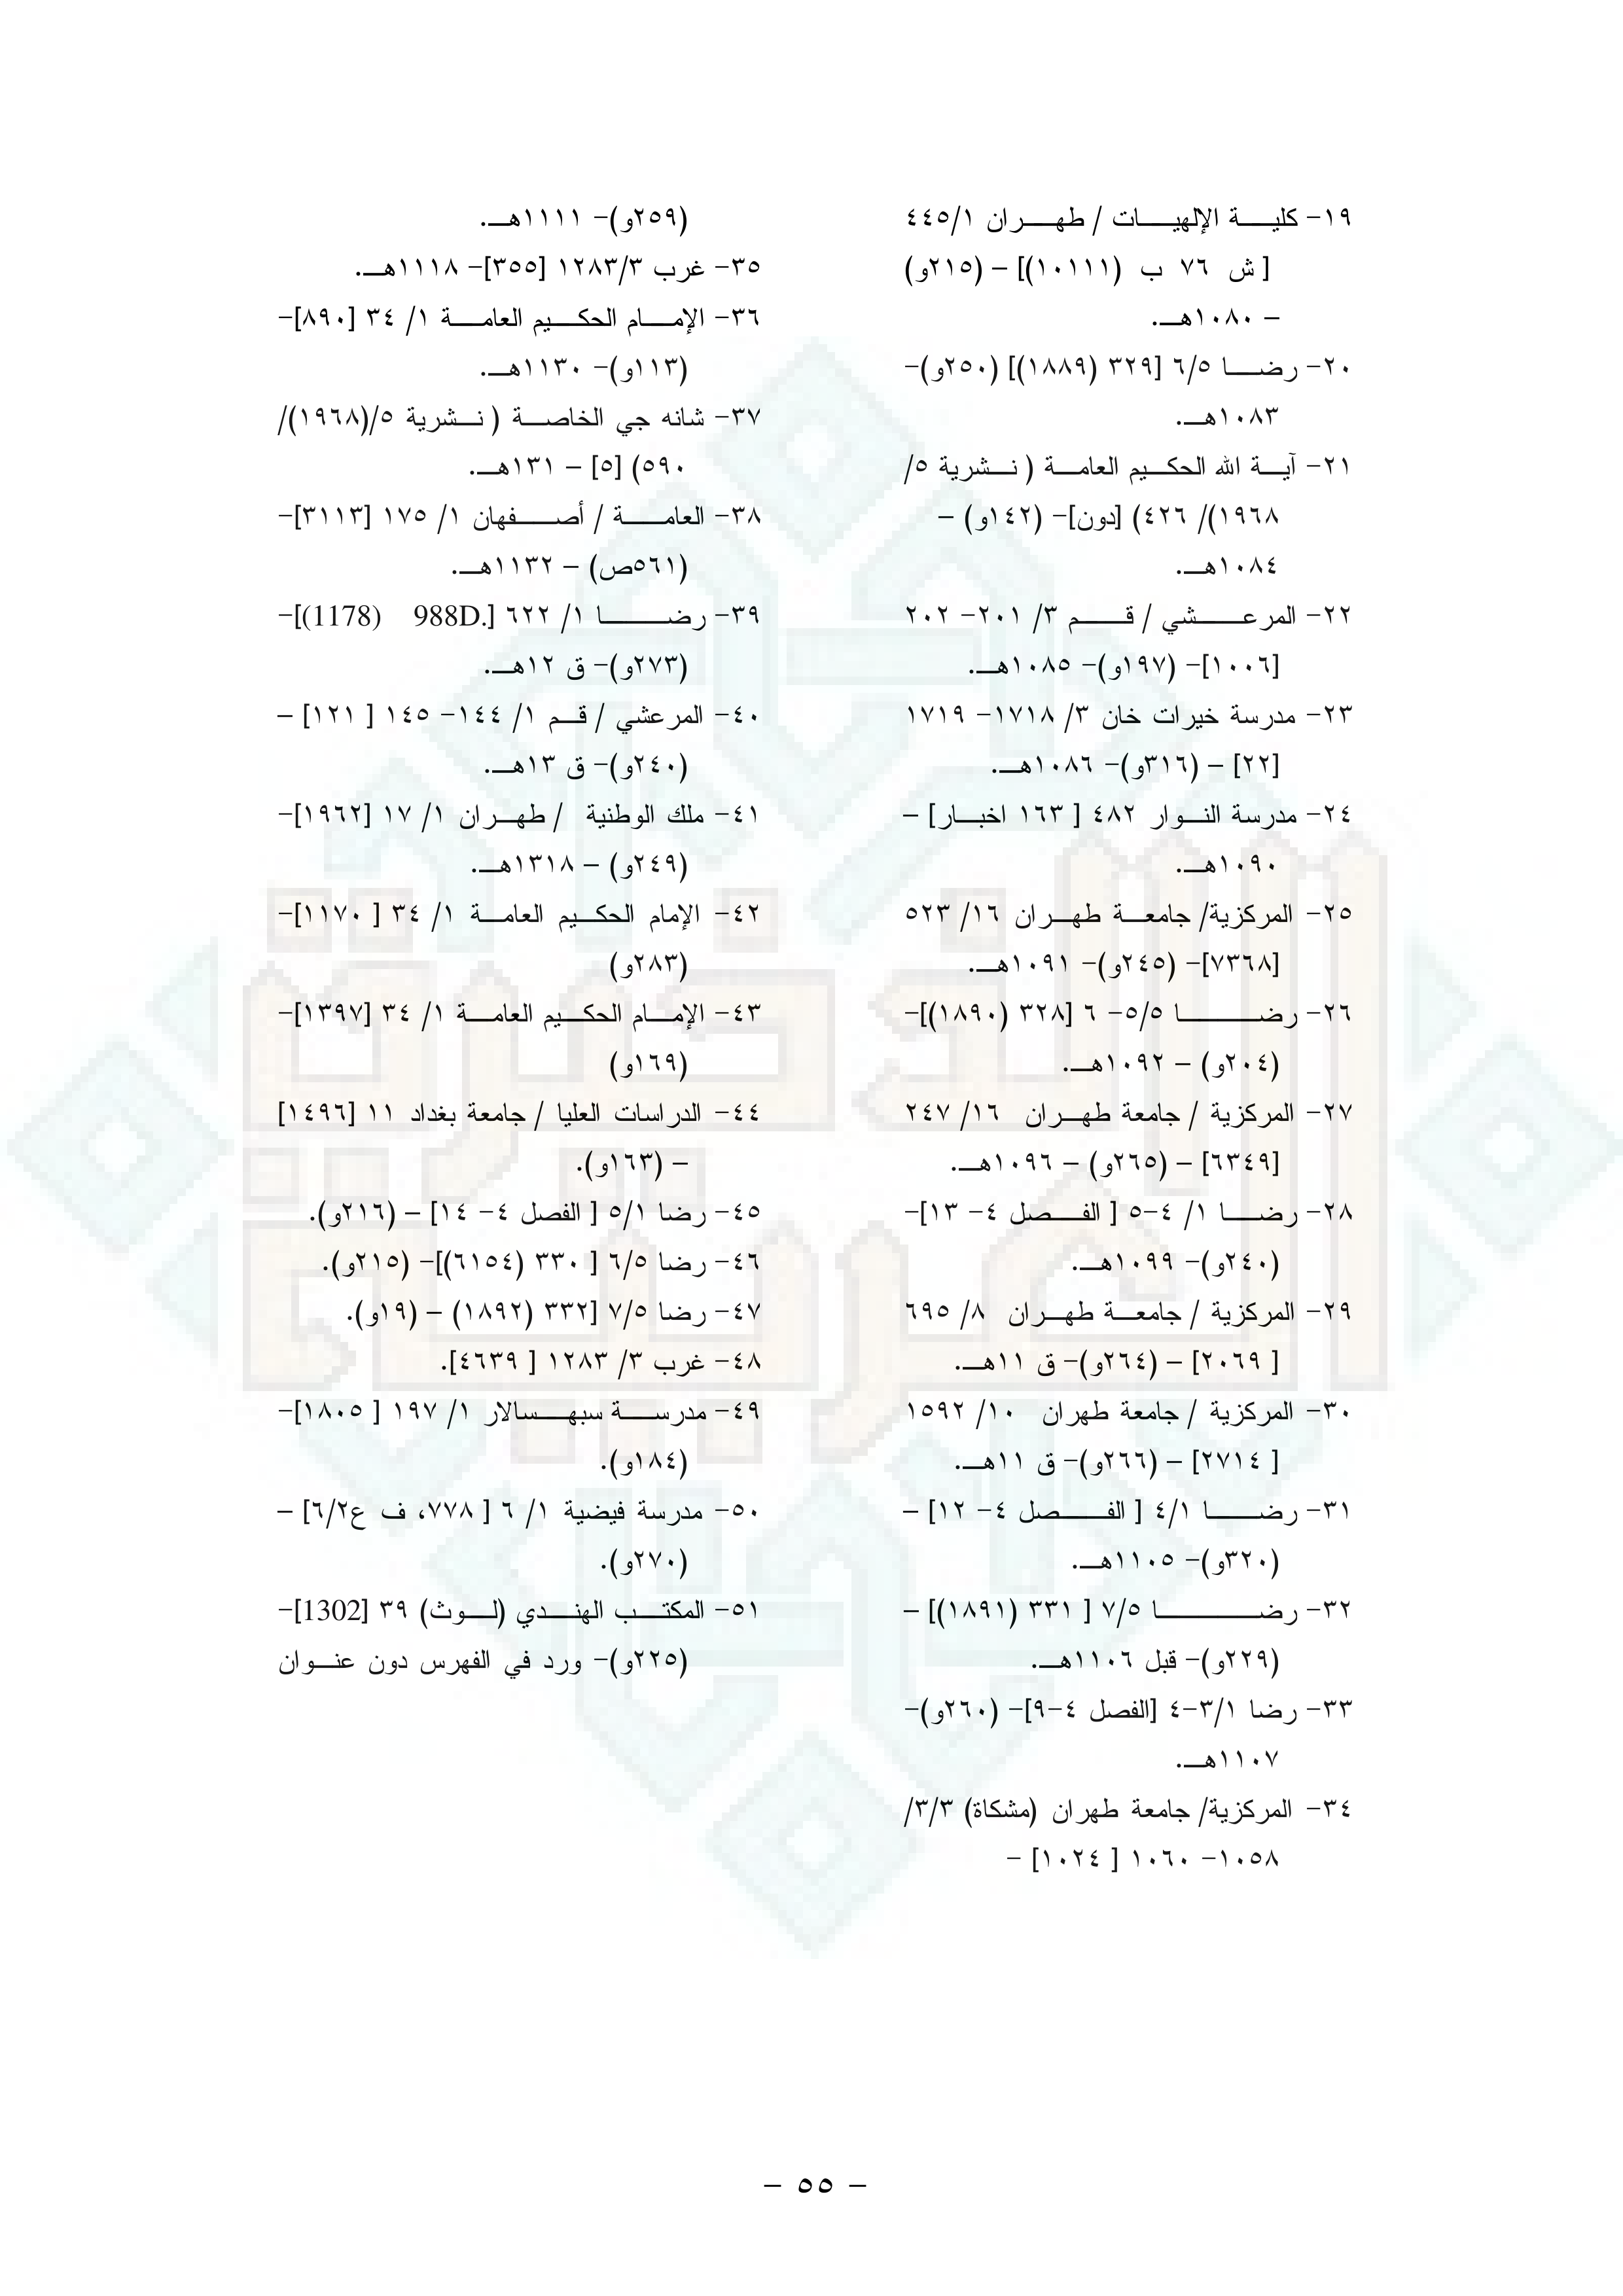 ١٩- كليـــة الإلهيـــات / طهـــران ٤٤٥/١
[ ش ٧٦ ب (١٠١١١)] – (٢١٥و)
– ١٠٨٠هـ.
٢٠- رضـــا ٦/٥ [٣٢٩ (١٨٨٩)] (٢٥٠و)-
١٠٨٣هـ.
٢١- آيـة الله الحكـيم العامـة ( نـشرية ٥/
١٩٦٨)/ ٤٢٦) [دون]- (١٤٢و) –
١٠٨٤هـ.
٢٢- المرعـــشي / قـــم ٣/ ٢٠١- ٢٠٢
[١٠٠٦]- (١٩٧و)- ١٠٨٥هـ.
٢٣- مدرسة خيرات خان ٣/ ١٧١٨- ١٧١٩
[٢٢] – (٣١٦و)- ١٠٨٦هـ.
٢٤- مدرسة النـوار ٤٨٢ [ ١٦٣ اخبـار] –
١٠٩٠هـ.
٢٥- المركزية/ جامعـة طهـران ١٦/ ٥٢٣
[٧٣٦٨]- (٢٤٥و)- ١٠٩١هـ.
٢٦- رضـــــا ٥/٥- ٦ [٣٢٨ (١٨٩٠)]-
(٢٠٤و) – ١٠٩٢هـ.
٢٧- المركزية / جامعة طهـران ١٦/ ٢٤٧
[٦٣٤٩] – (٢٦٥و) – ١٠٩٦هـ.
٢٨- رضـــا ١/ ٤-٥ [ الفـــصل ٤- ١٣]-
(٢٤٠و)- ١٠٩٩هـ.
٢٩- المركزية / جامعـة طهـران ٨/ ٦٩٥
[ ٢٠٦٩] – (٢٦٤و)- ق ١١هـ.
٣٠- المركزية / جامعة طهران ١٠/ ١٥٩٢
[ ٢٧١٤] – (٢٦٦و)- ق ١١هـ.
٣١- رضـــــا ٤/١ [ الفـــــصل ٤- ١٢] –
(٣٢٠و)- ١١٠٥هـ.
٣٢- رضـــــــا ٧/٥ [ ٣٣١ (١٨٩١)] –
(٢٢٩و)- قبل ١١٠٦هـ.
٣٣- رضا ٣/١-٤ [الفصل ٤-٩]- (٢٦٠و)-
١١٠٧هـ.
٣٤- المركزية/ جامعة طهران (مشكاة) ٣/٣/
١٠٥٨- ١٠٦٠ [ ١٠٢٤] -
(٢٥٩و)- ١١١١هـ.
٣٥- غرب ١٢٨٣/٣ [٣٥٥]- ١١١٨هـ.
٣٦- الإمـــام الحكـــيم العامـــة ١/ ٣٤ [٨٩٠]-
(١١٣و)- ١١٣٠هـ.
٣٧- شانه جي الخاصـة ( نـشرية ٥/(١٩٦٨)/
٥٩٠) [٥] – ١٣١هـ.
٣٨- العامـــة / أصـــفهان ١/ ١٧٥ [٣١١٣]-
(٥٦١ص) – ١١٣٢هـ.
٣٩- رضـــــا ١/ ٦٢٢ [.988D (1178)]-
(٢٧٣و)- ق ١٢هـ.
٤٠- المرعشي / قـم ١/ ١٤٤- ١٤٥ [ ١٢١] –
(٢٤٠و)- ق ١٣هـ.
٤١- ملك الوطنية / طهـران ١/ ١٧ [١٩٦٢]-
(٢٤٩و) – ١٣١٨هـ.
٤٢- الإمام الحكـيم العامـة ١/ ٣٤ [ ١١٧٠]-
(٢٨٣و)
٤٣- الإمـام الحكـيم العامـة ١/ ٣٤ [١٣٩٧]-
(١٦٩و)
٤٤- الدراسات العليا / جامعة بغداد ١١ [١٤٩٦]
– (١٦٣و).
٤٥- رضا ٥/١ [ الفصل ٤- ١٤] – (٢١٦و).
٤٦- رضا ٦/٥ [ ٣٣٠ (٦١٥٤)]- (٢١٥و).
٤٧- رضا ٧/٥ [٣٣٢ (١٨٩٢) – (١٩و).
٤٨- غرب ٣/ ١٢٨٣ [ ٤٦٣٩].
٤٩- مدرســـة سبهـــسالار ١/ ١٩٧ [ ١٨٠٥]-
(١٨٤و).
٥٠- مدرسة فيضية ١/ ٦ [ ٧٧٨، ف ع٦/٢] –
(٢٧٠و).
٥١- المكتـب الهنـدي (لـوث) ٣٩ [1302]-
(٢٢٥و)- ورد في الفهرس دون عنـوان
- ٥٥ -